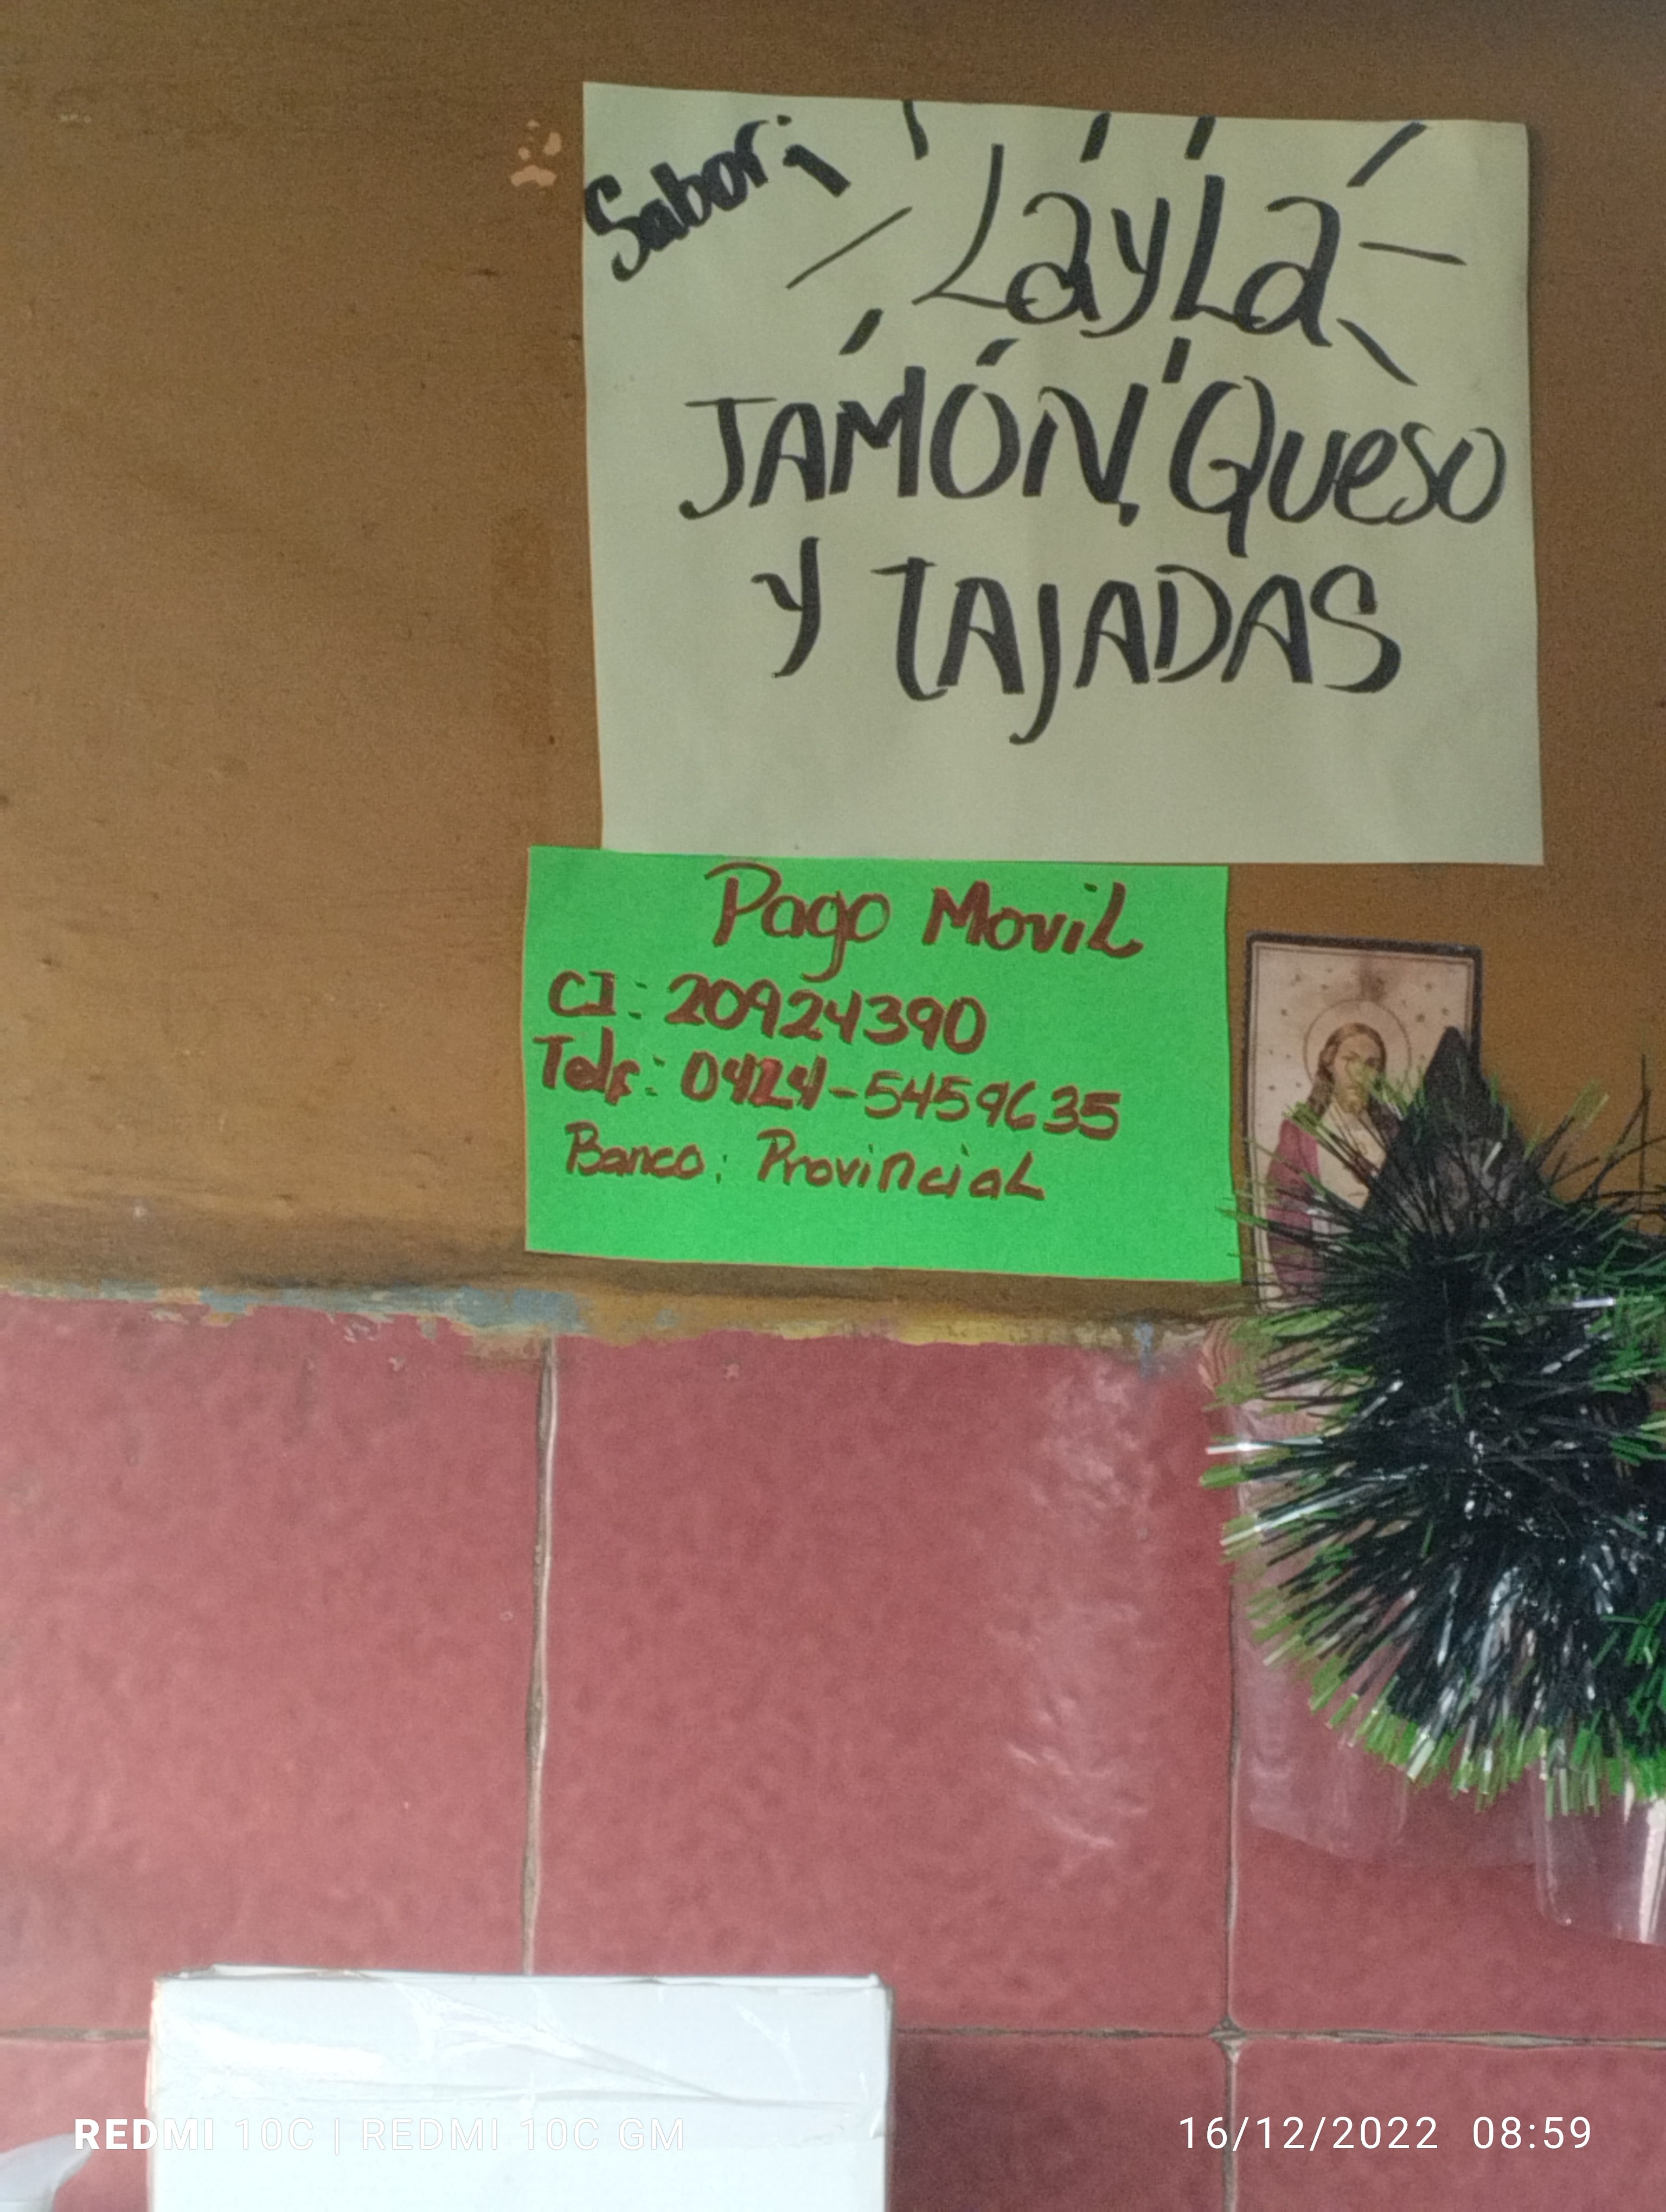 Sabor:
LayLa
JAMÓN, Queso
y TAJADAS
Pago MoviL
CI: 20924390
Telf: 0424-5459635
Banco: ProvinciaL
REDMI 10C | REDMI 10C GM
16/12/2022 08:59